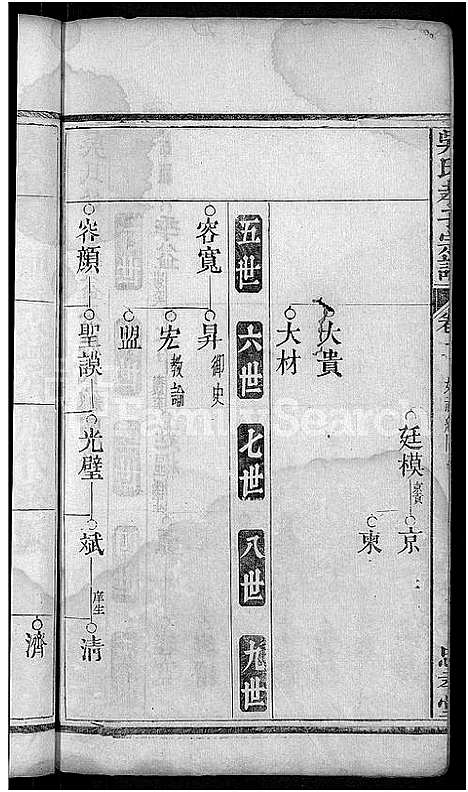 吳氏孝子宗譜
卷
廷模
京
東
大貴
大材
五世 六世 七世 八世 九世
容寬
昇 御史
宏 教諭
盟
容顏
聖謨
光璧
斌 庠生
清
濟
FamilySearch